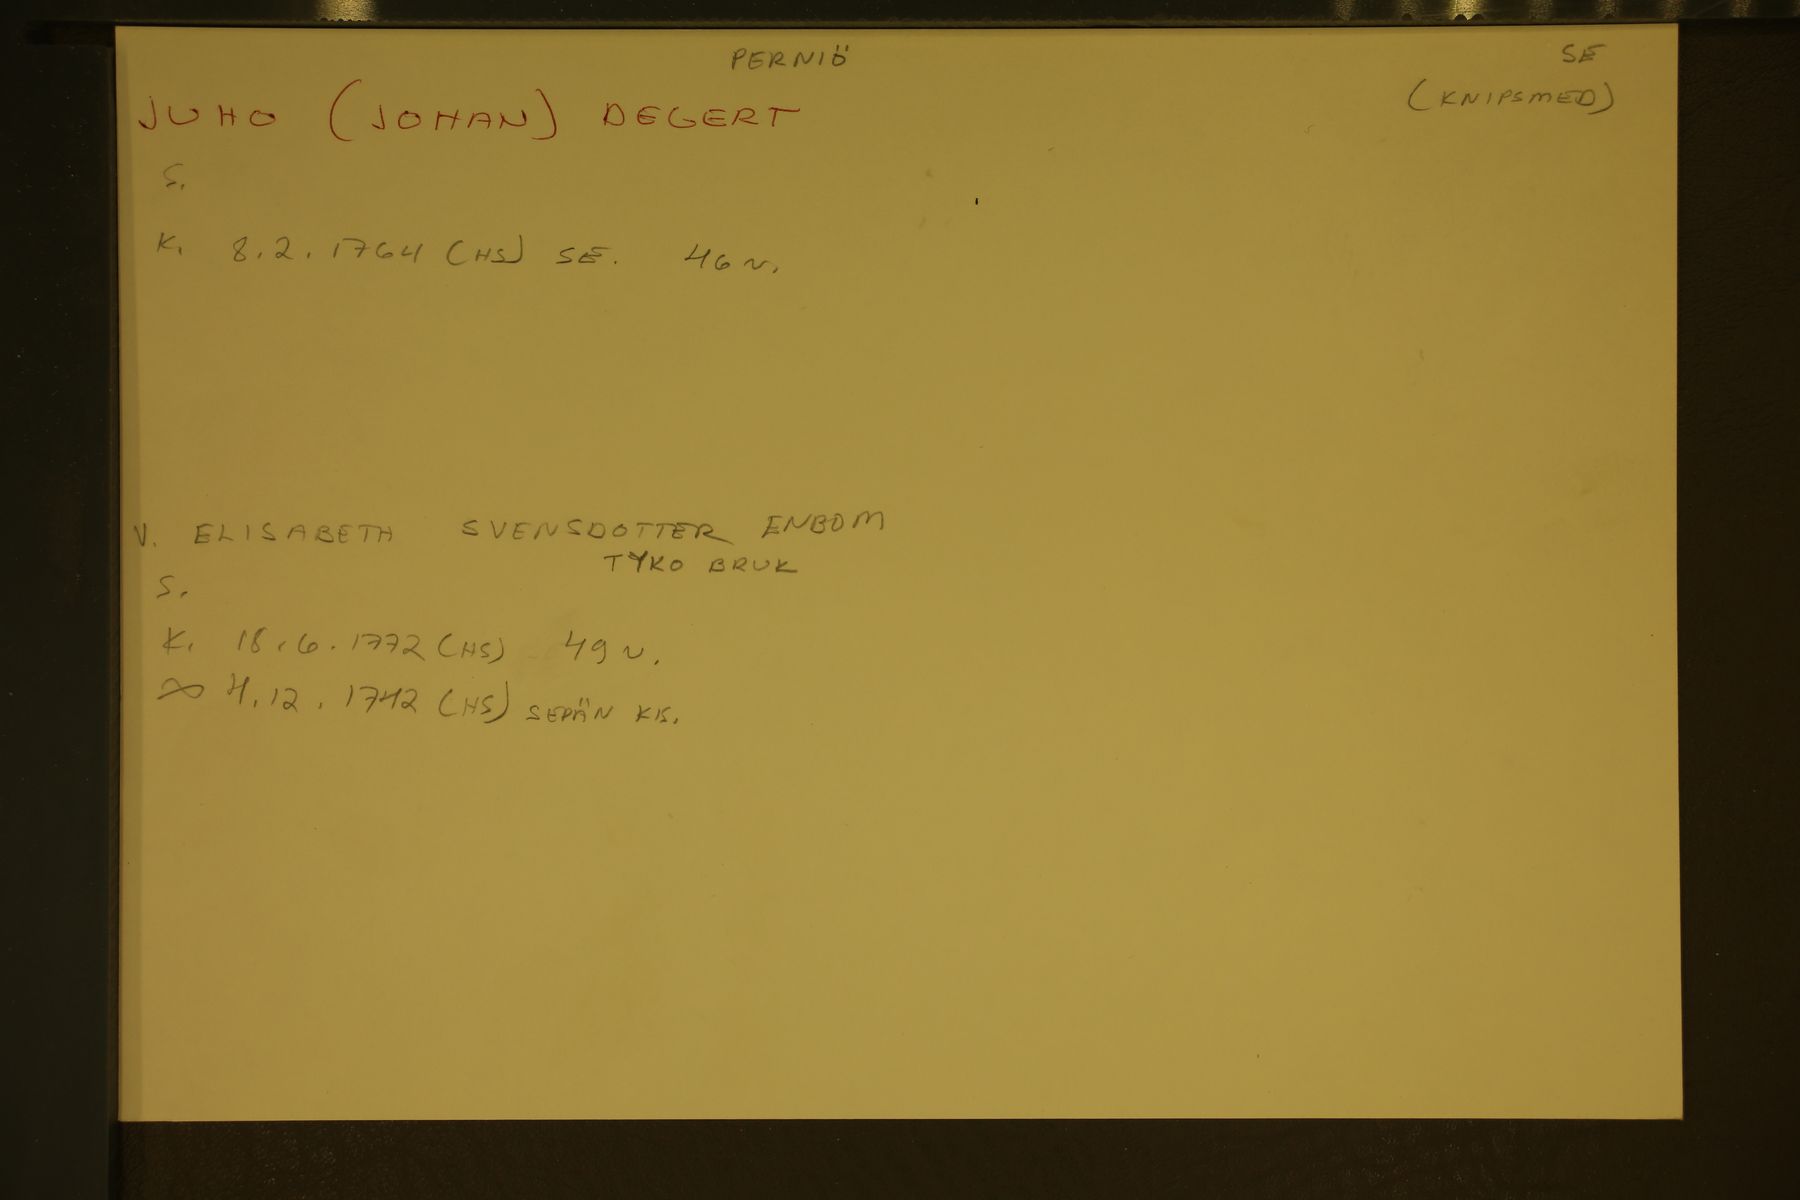 PERNIÖ SE
(KNIPSMED)
JUHO (JOHAN) DEGERT
S.
K. 8.2.1764 (HS) SE. 46 v.
V. ELISABETH SVENSDOTTER ENBOM
TYKO BRUK
S.
K. 18.6.1772 (HS) 49 v.
∞ 4.12.1742 (HS) SEPÄN KIS.